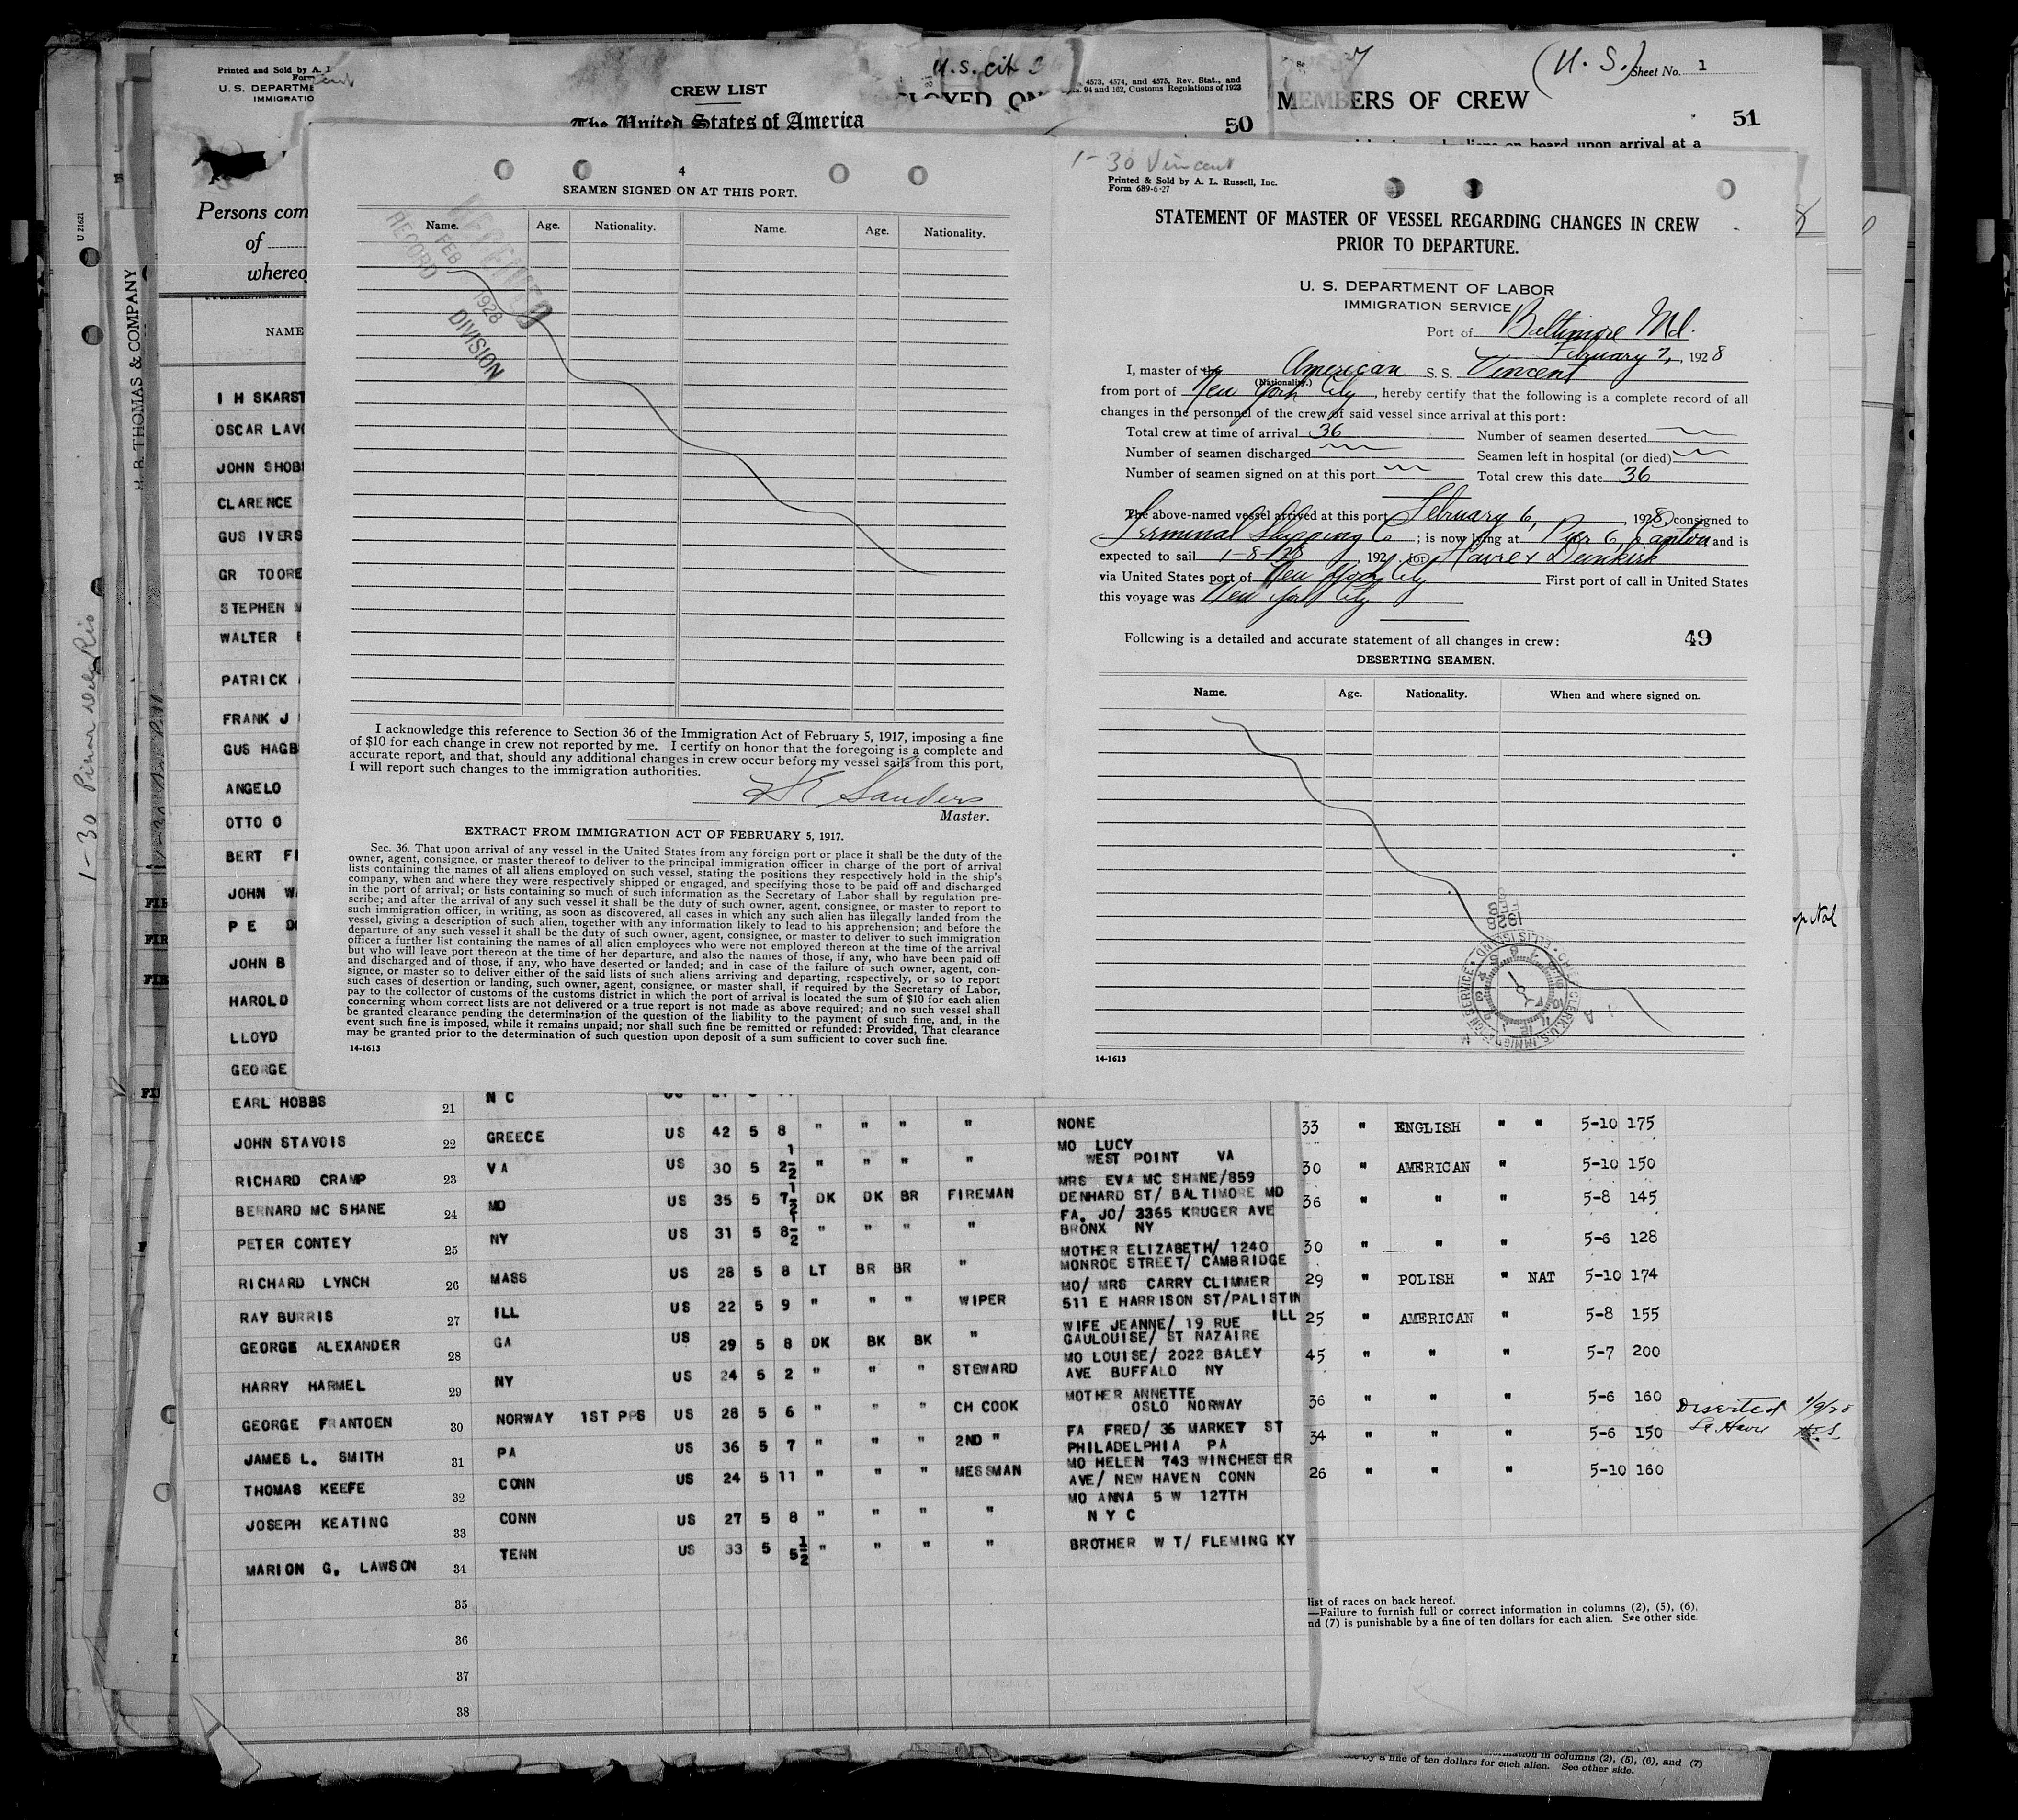 Printed and Sold by A.
U. S. DEPARTME
IMMIGRATIO
CREW LIST
The United States of America
U.S. Cit
4573, 4574, and 4575, Rev. Stat., and
94 and 162, Customs Regulations of 1923
50
(U. S.)
Sheet No. 1
MEMBERS OF CREW
51
on board upon arrival at a
Persons com
of
whereo
NAME
U 21621
H. B. THOMAS & COMPANY
1-30 Pinar del Rio
4
SEAMEN SIGNED ON AT THIS PORT.
Name. Age. Nationality. Name. Age. Nationality.
RECEIVED
FEB 1928
RECORD DIVISION
I acknowledge this reference to Section 36 of the Immigration Act of February 5, 1917, imposing a fine
of $10 for each change in crew not reported by me. I certify on honor that the foregoing is a complete and
accurate report, and that, should any additional changes in crew occur before my vessel sails from this port,
I will report such changes to the immigration authorities.
Sanders
Master.
EXTRACT FROM IMMIGRATION ACT OF FEBRUARY 5, 1917.
Sec. 36. That upon arrival of any vessel in the United States from any foreign port or place it shall be the duty of the
owner, agent, consignee, or master thereof to deliver to the principal immigration officer in charge of the port of arrival
lists containing the names of all aliens employed on such vessel, stating the positions they respectively hold in the ship's
company, when and where they were respectively shipped or engaged, and specifying those to be paid off and discharged
in the port of arrival; or lists containing so much of such information as the Secretary of Labor shall by regulation pre-
scribe; and after the arrival of any such vessel it shall be the duty of such owner, agent, consignee, or master to report to
such immigration officer, in writing, as soon as discovered, all cases in which any such alien has illegally landed from the
vessel, giving a description of such alien, together with any information likely to lead to his apprehension; and before the
departure of any such vessel it shall be the duty of such owner, agent, consignee, or master to deliver to such immigration
officer a further list containing the names of all alien employees who were not employed thereon at the time of the arrival
but who will leave port thereon at the time of her departure, and also the names of those, if any, who have been paid off
and discharged and of those, if any, who have deserted or landed; and in case of the failure of such owner, agent, con-
signee, or master so to deliver either of the said lists of such aliens arriving and departing, respectively, or so to report
such cases of desertion or landing, such owner, agent, consignee, or master shall, if required by the Secretary of Labor,
pay to the collector of customs of the customs district in which the port of arrival is located the sum of $10 for each alien
concerning whom correct lists are not delivered or a true report is not made as above required; and no such vessel shall
be granted clearance pending the determination of the question of the liability to the payment of such fine, and, in the
event such fine is imposed, while it remains unpaid; nor shall such fine be remitted or refunded: Provided, That clearance
may be granted prior to the determination of such question upon deposit of a sum sufficient to cover such fine.
14-1613
1-30 Vincent
Printed & Sold by A. L. Russell, Inc.
Form 689-6-27
STATEMENT OF MASTER OF VESSEL REGARDING CHANGES IN CREW
PRIOR TO DEPARTURE.
U. S. DEPARTMENT OF LABOR
IMMIGRATION SERVICE
Port of Baltimore Md.
February 7, 1928
I, master of the American S. S. Vincent
(Nationality.)
from port of New York City, hereby certify that the following is a complete record of all
changes in the personnel of the crew of said vessel since arrival at this port:
Total crew at time of arrival 36 Number of seamen deserted
Number of seamen discharged Seamen left in hospital (or died)
Number of seamen signed on at this port Total crew this date 36
The above-named vessel arrived at this port February 6, 1928, consigned to
Terminal Shipping Co; is now lying at Pier 6, Canton and is
expected to sail 1-8-28, 192 , for Havre & Dunkirk
via United States port of New York City First port of call in United States
this voyage was New York City
Following is a detailed and accurate statement of all changes in crew: 49
DESERTING SEAMEN.
Name. Age. Nationality. When and where signed on.
1928 FEB 8
14-1613
I H SKARST
OSCAR LAVO
JOHN SHOB
CLARENCE
GUS IVERS
GR TOORE
STEPHEN
WALTER
PATRICK
FRANK J
GUS HAGB
ANGELO
OTTO O
BERT
JOHN
P E
JOHN B
HAROLD
LLOYD
GEORGE
EARL HOBBS 21 N C
JOHN STAVOIS 22 GREECE US 42 5 8 " " " " NONE
RICHARD CRAMP 23 VA US 30 5 2 1/2 " " " " MO LUCY
WEST POINT VA
BERNARD MC SHANE 24 MD US 35 5 7 1/2 DK DK BR FIREMAN MRS EVA MC SHANE/859
DENHARD ST/ BALTIMORE MD
PETER CONTEY 25 NY US 31 5 8 1/2 " " " " FA. JO/ 3365 KRUGER AVE
BRONX NY
RICHARD LYNCH 26 MASS US 28 5 8 LT BR BR " MOTHER ELIZABETH/ 1240
MONROE STREET/ CAMBRIDGE
RAY BURRIS 27 ILL US 22 5 9 " " " WIPER MO/ MRS CARRY CLIMMER
511 E HARRISON ST/PALISTIN
ILL
GEORGE ALEXANDER 28 GA US 29 5 8 DK BK BK " WIFE JEANNE/ 19 RUE
GAULOUISE/ ST NAZAIRE
HARRY HARMEL 29 NY US 24 5 2 " " " STEWARD MO LOUISE/ 2022 BALEY
AVE BUFFALO NY
GEORGE FRANTOEN 30 NORWAY 1ST PPS US 28 5 6 " " " CH COOK MOTHER ANNETTE
OSLO NORWAY
JAMES L. SMITH 31 PA US 36 5 7 " " " 2ND " FA FRED/ 36 MARKET ST
PHILADELPHIA PA
THOMAS KEEFE 32 CONN US 24 5 11 " " " MESSMAN MO HELEN 743 WINCHESTER
AVE/ NEW HAVEN CONN
JOSEPH KEATING 33 CONN US 27 5 8 " " " " MO ANNA 5 W 127TH
N Y C
MARION G. LAWSON 34 TENN US 33 5 5 1/2 " " " " BROTHER W T/ FLEMING KY
35
36
37
38
33 " ENGLISH " " 5-10 175
30 " AMERICAN " 5-10 150
36 " " " 5-8 145
30 " " " 5-6 128
29 " POLISH " NAT 5-10 174
25 " AMERICAN " 5-8 155
45 " " " 5-7 200
36 " " " 5-6 160 Deserted
34 " " " 5-6 150 Le Havre
26 " " " 5-10 160
list of races on back hereof.
—Failure to furnish full or correct information in columns (2), (5), (6),
nd (7) is punishable by a fine of ten dollars for each alien. See other side.
in columns (2), (5), (6), and (7)
by a fine of ten dollars for each alien. See other side.